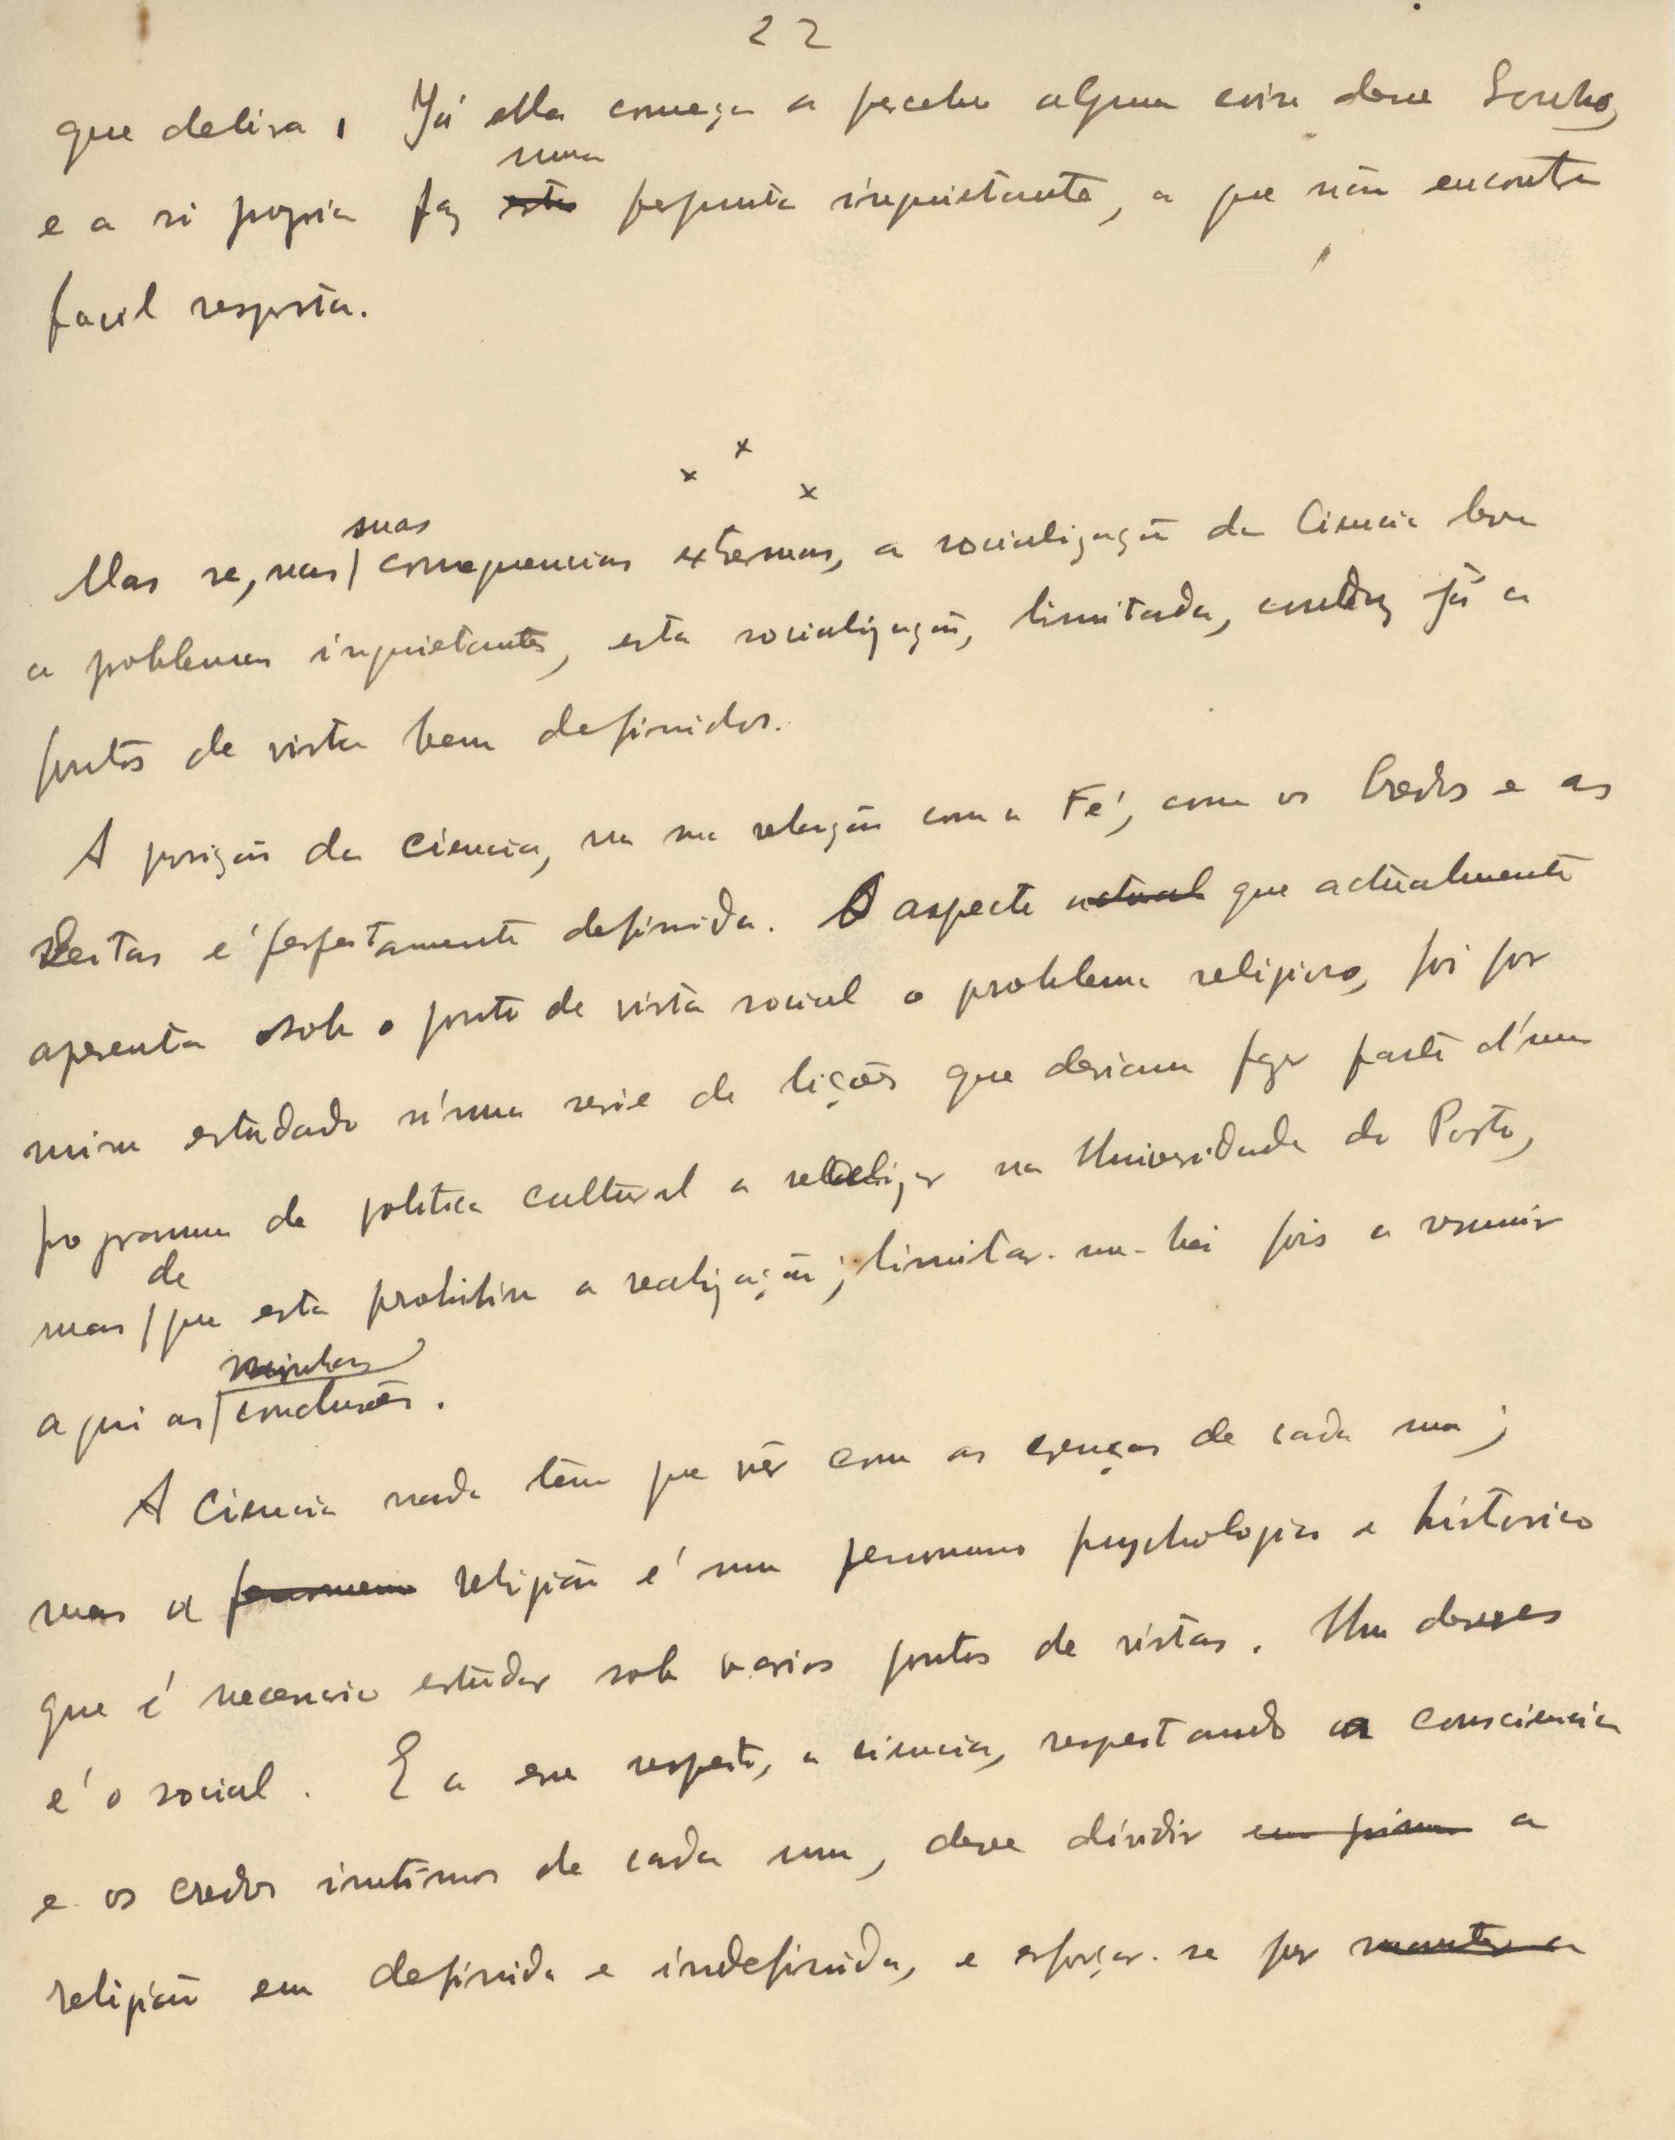 22
que delira, Já ella começa a perceber alguma coisa desse Sonho,
uma
e a si propria faz esta pergunta inquietante, a que não encontra
facil resposta.
x x x
suas
Mas se, nas consequencias extremas, a socialização da Ciencia leva
a problemas inquietantes, esta socialização, limitada, conduz já a
pontos de vista bem definidos.
A posição da Ciencia, na sua relação com a Fé, com os Credos e as
Seitas é perfeitamente definida. O aspecto actual que actualmente
apresenta sob o ponto de vista social o problema religioso, foi por
mim estudado n'uma serie de lições que deviam fazer parte d'um
programa de politica cultural a realizar na Universidade do Porto,
de
mas que esta prohibiu a realização; limitar-me-hei pois a resumir
minhas
aqui as conclusões.
A Ciencia nada tem que vêr com as crenças de cada um;
mas a fenomeno religião é um fenomeno psychologico e historico
que é necessario estudar sob varios pontos de vistas. Um desses
é o social. E a esse respeito, a ciencia, respeitando a consciencia
e os credos intimos de cada um, deve dividir a
religião em definida e indefinida, e esforçar-se por manter a